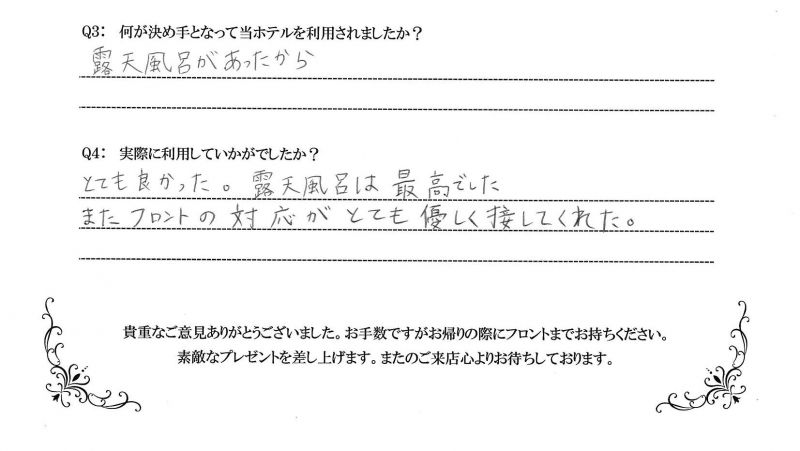 Q3: 何が決め手となって当ホテルを利用されましたか？
露天風呂があったから
Q4: 実際に利用していかがでしたか？
とても良かった。露天風呂は最高でした
またフロントの対応がとても優しく接してくれた。
貴重なご意見ありがとうございました。お手数ですがお帰りの際にフロントまでお持ちください。
素敵なプレゼントを差し上げます。またのご来店心よりお待ちしております。